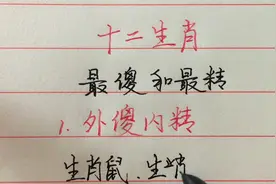 十二生肖
最傻和最精
1.外傻内精
生肖鼠.生